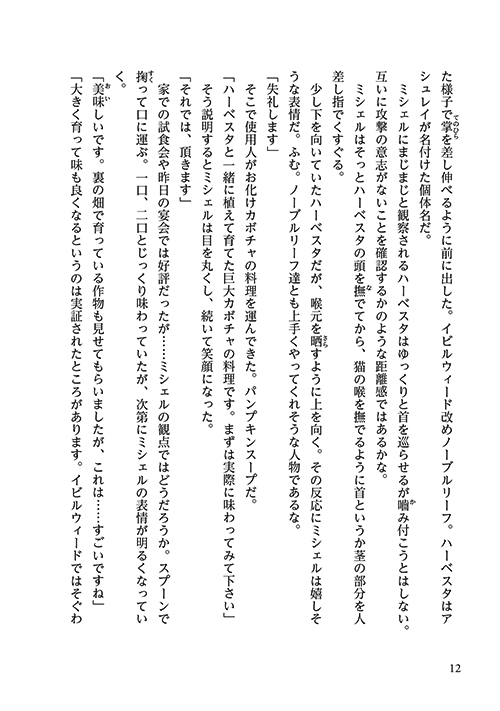 た様子で掌を差し伸べるように前に出した。イビルウィード改めノーブルリーフ。ハーベスタはア
シュレイが名付けた個体名だ。
ミシェルにまじまじと観察されるハーベスタはゆっくりと首を巡らせるが噛み付こうとはしない。
互いに攻撃の意志がないことを確認するかのような距離感ではあるかな。
ミシェルはそっとハーベスタの頭を撫でてから、猫の喉を撫でるように首というか茎の部分を人
差し指でくすぐる。
少し下を向いていたハーベスタだが、喉元を晒すように上を向く。その反応にミシェルは嬉しそ
うな表情だ。ふむ。ノーブルリーフ達とも上手くやってくれそうな人物であるな。
「失礼します」
そこで使用人がお化けカボチャの料理を運んできた。パンプキンスープだ。
「ハーベスタと一緒に植えて育てた巨大カボチャの料理です。まずは実際に味わってみて下さい」
そう説明するとミシェルは目を丸くし、続いて笑顔になった。
「それでは、頂きます」
家での試食会や昨日の宴会では好評だったが……ミシェルの観点ではどうだろうか。スプーンで
掬って口に運ぶ。一口、二口とじっくり味わっていたが、次第にミシェルの表情が明るくなってい
く。
「美味しいです。裏の畑で育っている作物も見せてもらいましたが、これは……すごいですね」
「大きく育って味も良くなるというのは実証されたところがあります。イビルウィードではそぐわ
12